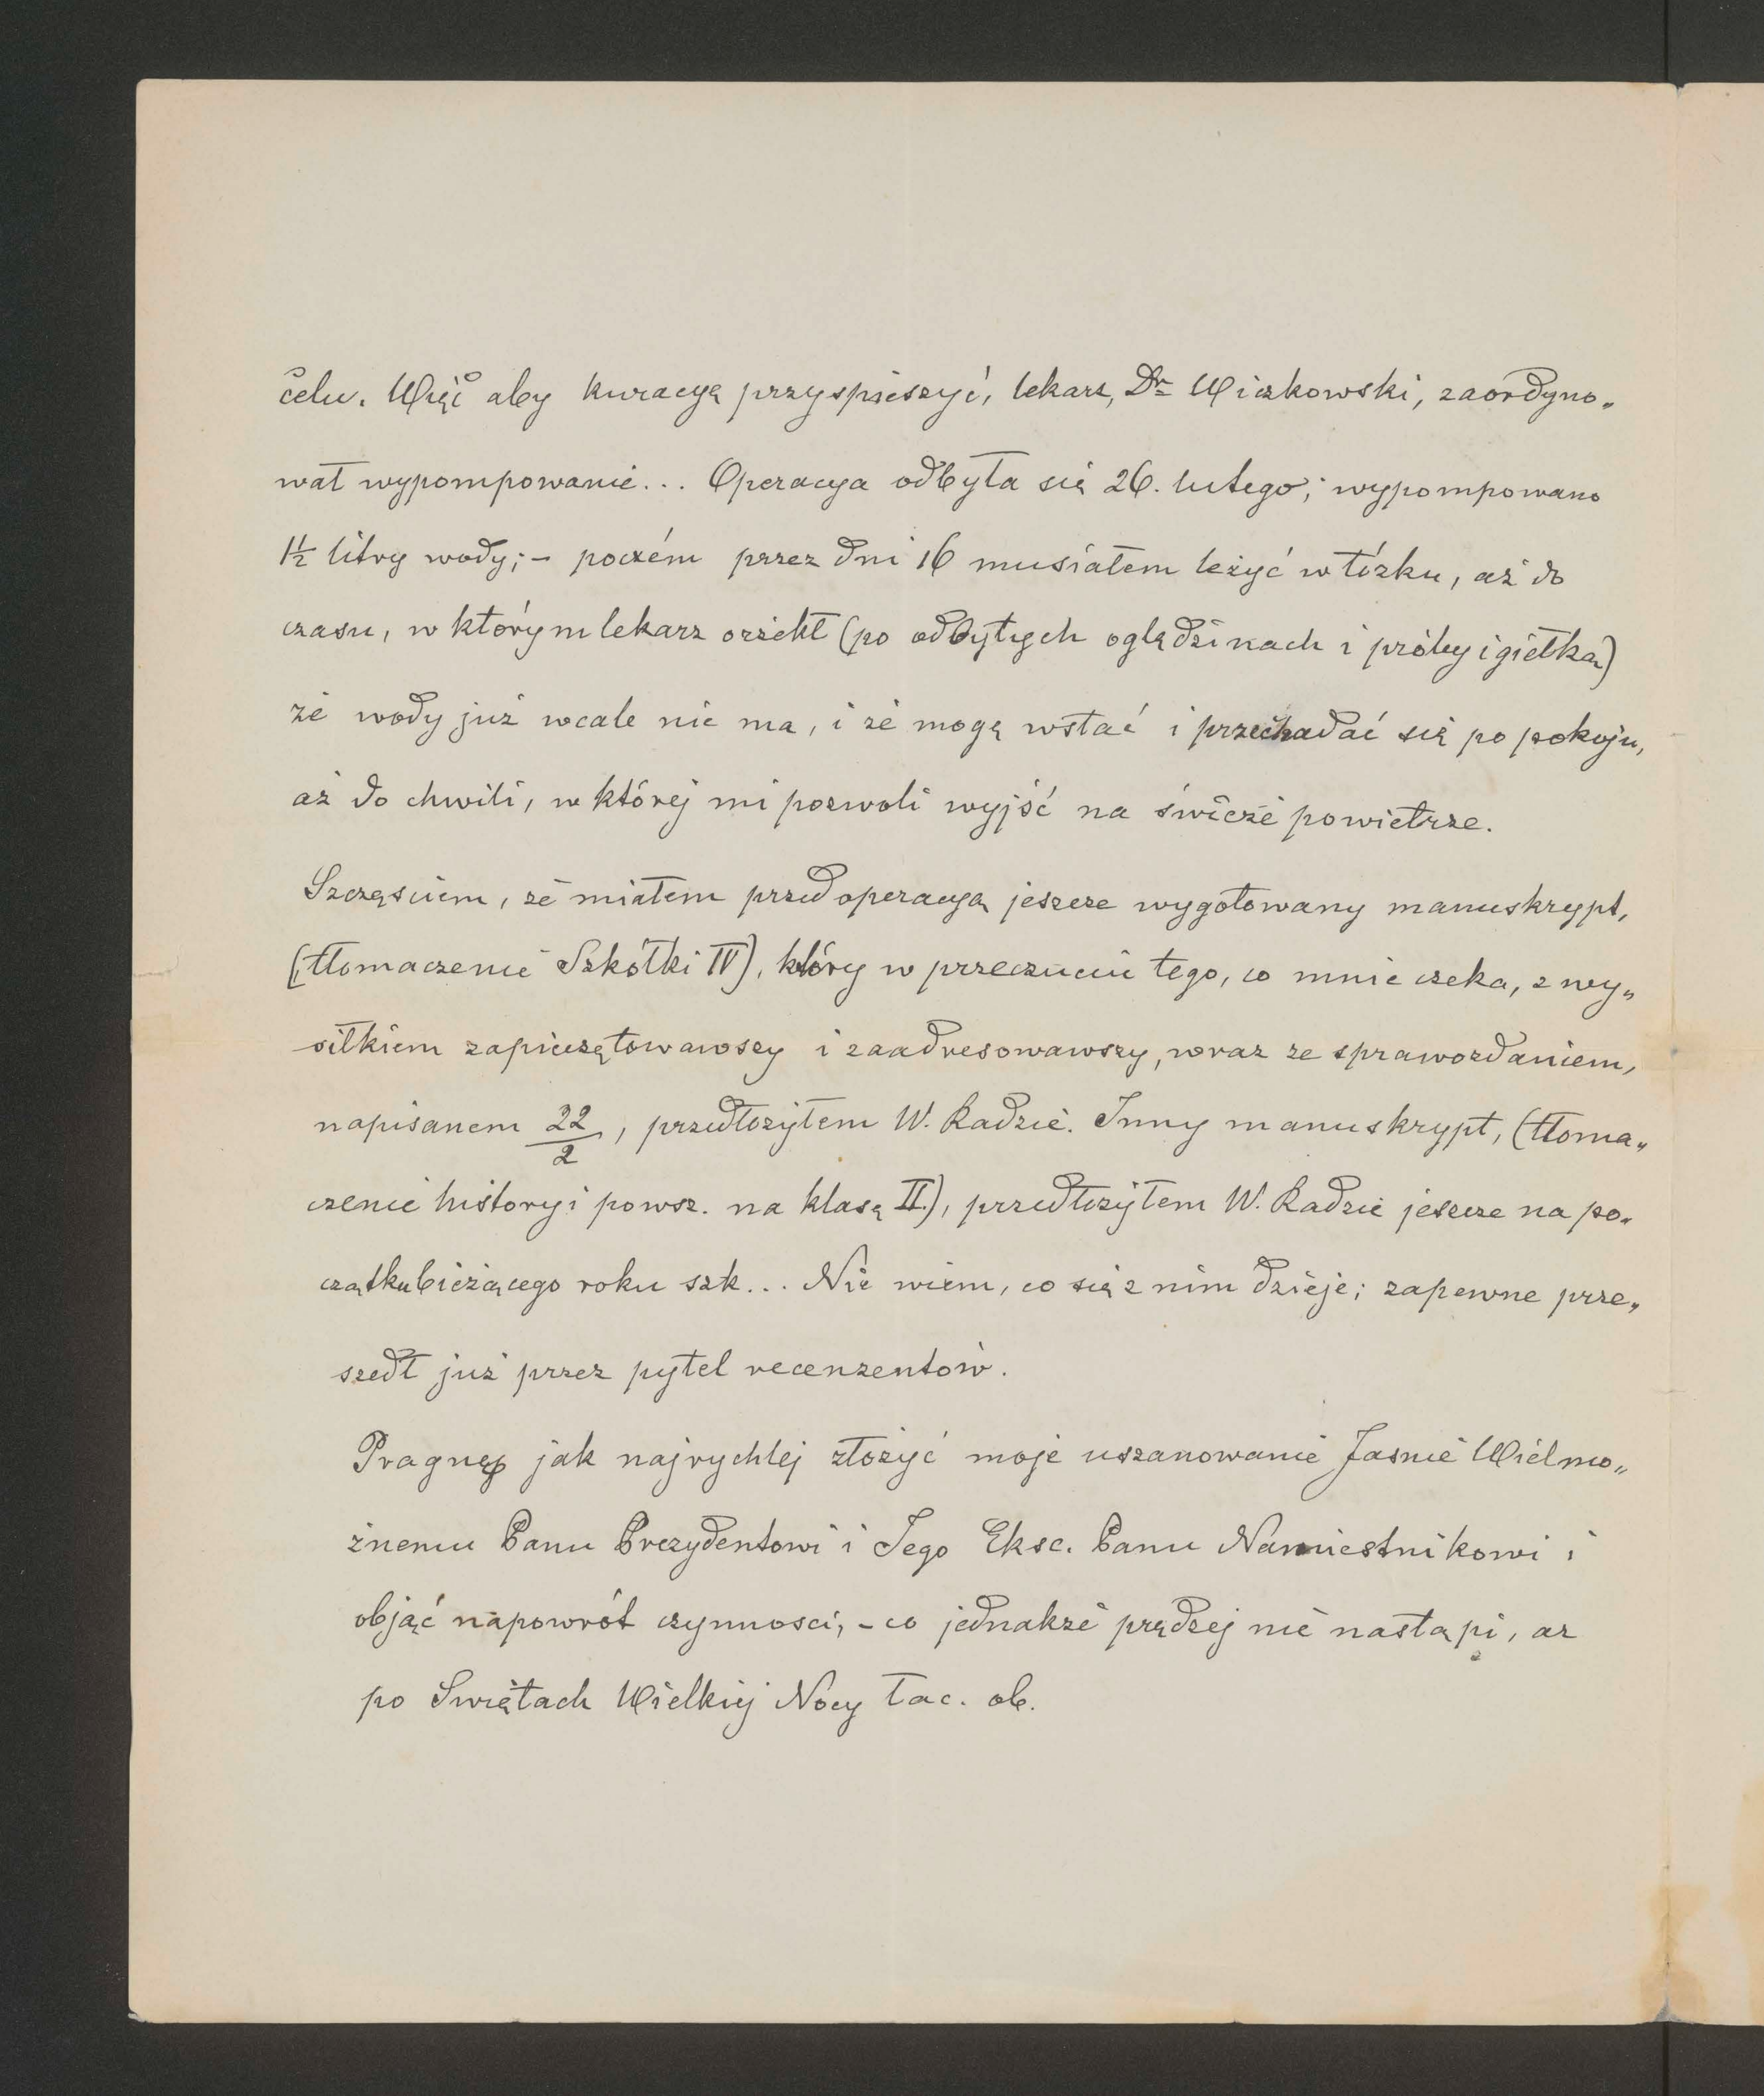 celu. Więc aby kuracyą przyspieszyć, lekarz, Dr Wiczkowski, zaordyno„
wał wypompowanie... Operacya odbyła się 26. lutego; wypompowano
1½ litry wody; – poczém przez dni 16 musiałem leżyć w łóżku, aż do
czasu, w którym lekarz orzekł (po odbytych oględzinach i próby igiełką)
że wody już wcale nie ma, i że mogę wstać i przechadać się po pokoju,
aż do chwili, w której mi pozwoli wyjść na świeże powietrze.
Szczęściem, że miałem przed operacyą jeszcze wygotowany manuskrypt,
(tłomaczenie Szkółki IV), który w przeczuciu tego, co mnie czeka, z wy„
siłkiem zapieczętowawszy i zaadresowawszy, wraz ze sprawozdaniem,
napisanem 22/2, przedłożyłem W. Radzie. Inny manuskrypt, (tłoma„
czenie history i powsz. na klasę II.), przedłożyłem W. Radzie jeszcze na po„
czątku bieżącego roku szk... Nie wiem, co się z nim dzieje; zapewne prze„
szedł już przez pytel recenzentów.
Pragnę jak najrychlej złożyć moje uszanowanie Jaśnie Wielmo„
żnemu Panu Prezydentowi i Jego Eksc. Panu Namiestnikowi i
objąć napowrót czynności, – co jednakże prędzej nie nastąpi, aż
po Swiętach Wielkiej Nocy łac. ob.